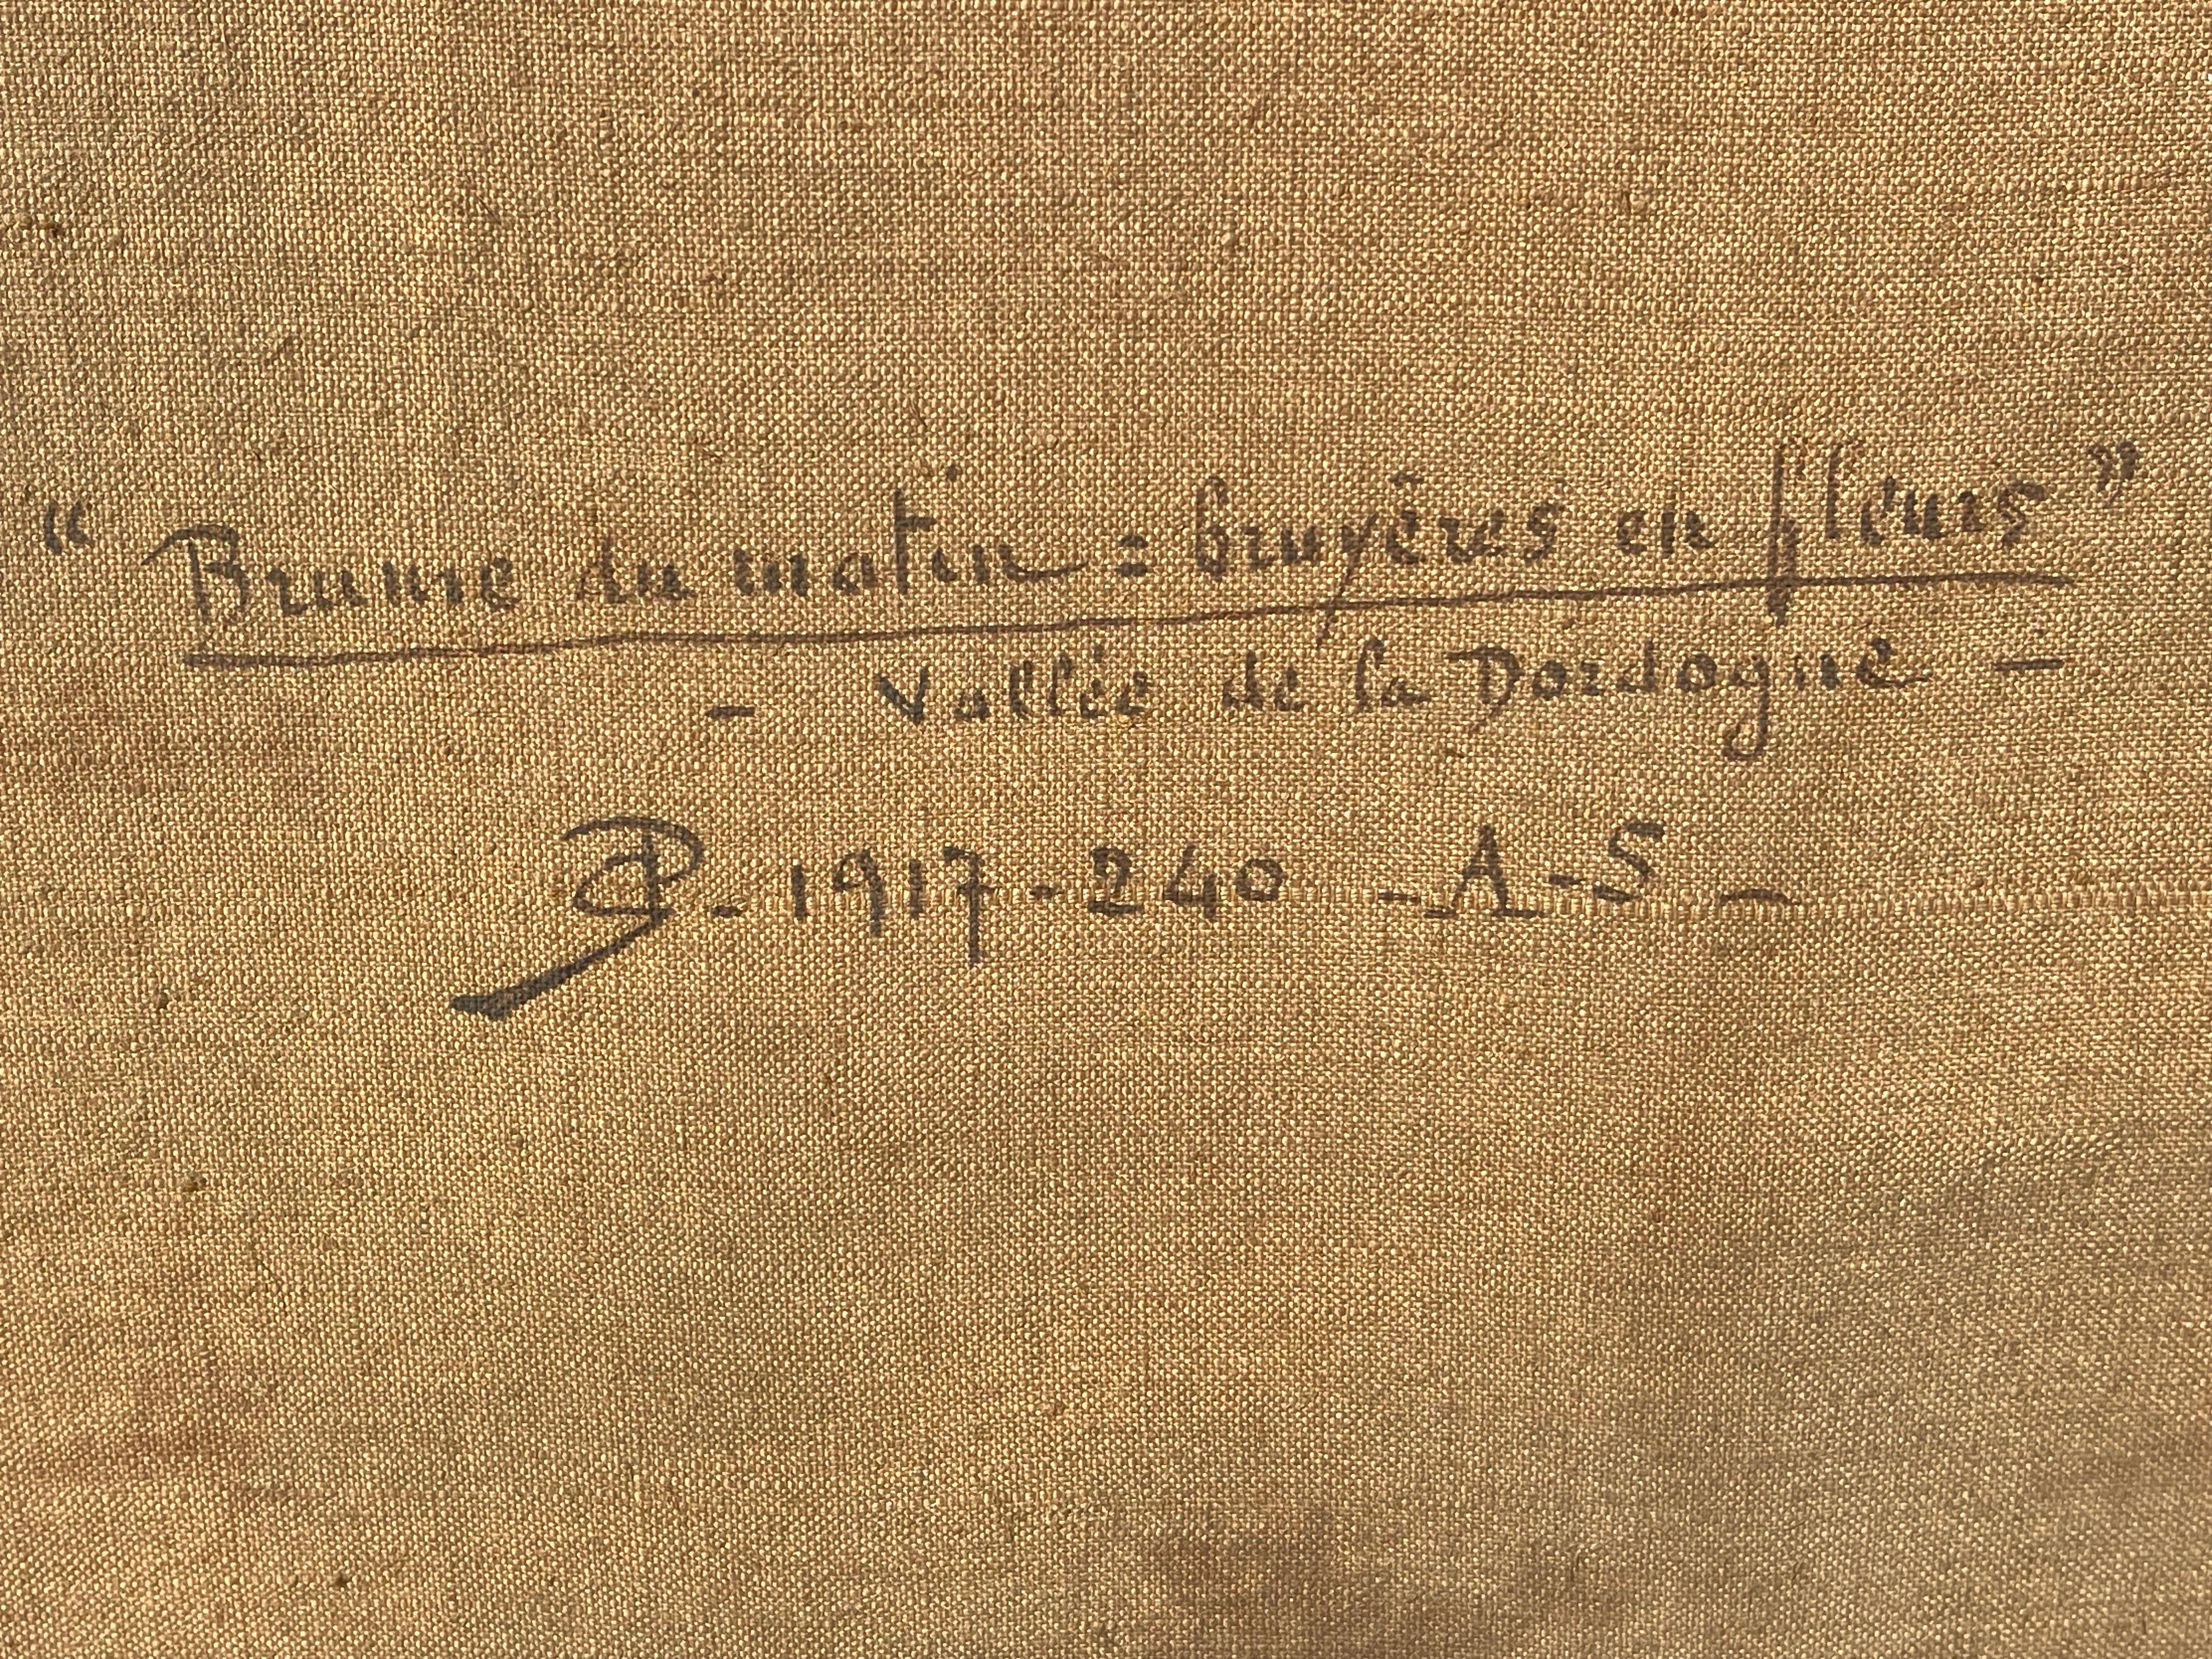 “ Brume du matin = bruyères en fleurs ”
- Vallée de la Dordogne -
- 1917 - 240 - A - S -